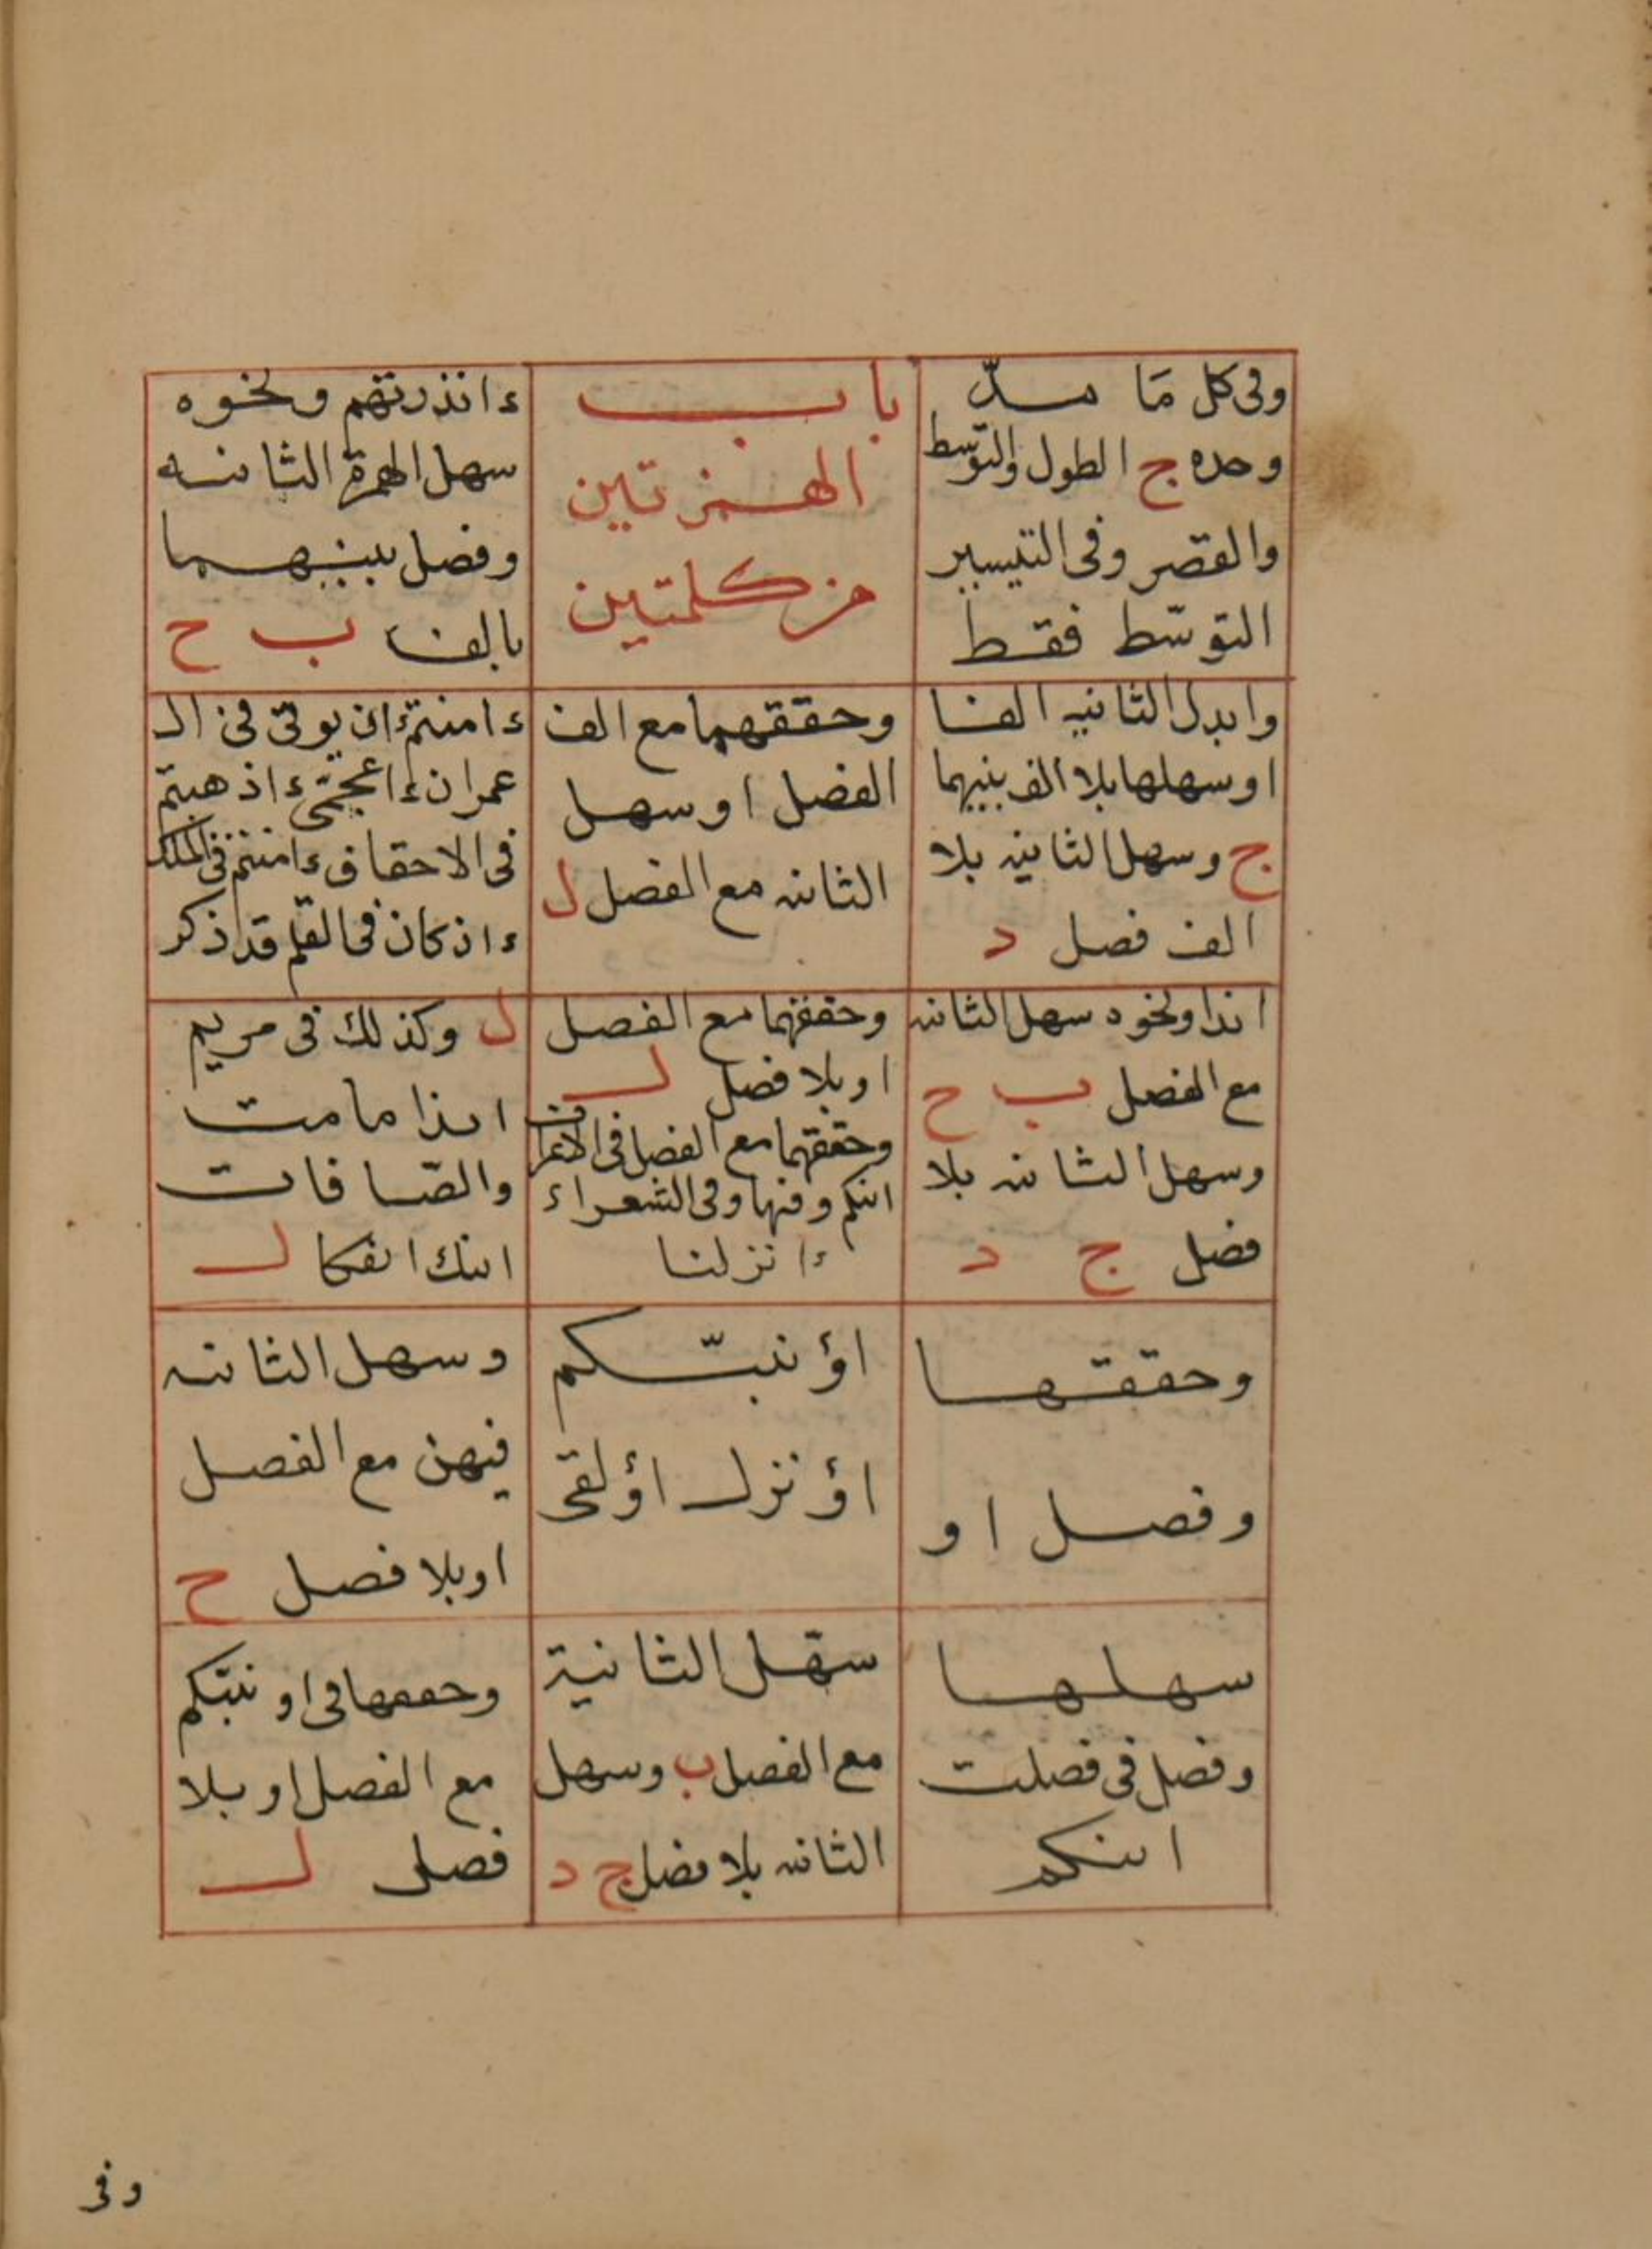 وفى كل مَا مدّ
وحده ج الطول والتوسط
والقصر وفى التيسير
التوسّط فقط
باب
الهمزتين
من كلمتين
ءانذرتهم ونحوه
سهل الهمزة الثانيه
وفصل بينهما
بالف ب ح
وابدل الثانيه الفا
او سهلها بلا الف بينهما
ج وسهل الثانيه بلا
الف فصل د
وحققهما مع الف
الفصل او سهل
الثانيه مع الفصل ل
ءامنتم ءان يوتى فى ال
عمران ءاعجمّى ءاذهبتم
فى الاحقاف ءامنتم فى الملك
ءاذكان فى القلم قد ذكر
ائذا ونحوه سهل الثانيه
مع الفصل ب ح
وسهل الثانيه بلا
فصل ج د
وحققهما مع الفصل
او بلا فصل ل
وحققهما مع الفصل فى الاعراف
ائنكم وفيها وفى الشعراء
ءانزلنا
ل وكذلك فى مريم
ائذا مامت
والصّافات
ائنك ائفكا ل
وحققها
وفصل او
اؤنبّئكم
اؤنزل اؤلقى
وسهل الثانيه
فيهن مع الفصل
او بلا فصل ح
سهلها
وفصل فى فصلت
ائنكم
سهّل الثانية
مع الفصل ب وسهل
الثانيه بلا فصل ج د
وحققها فى اونبئكم
مع الفصل او بلا
فصل ل
وفى